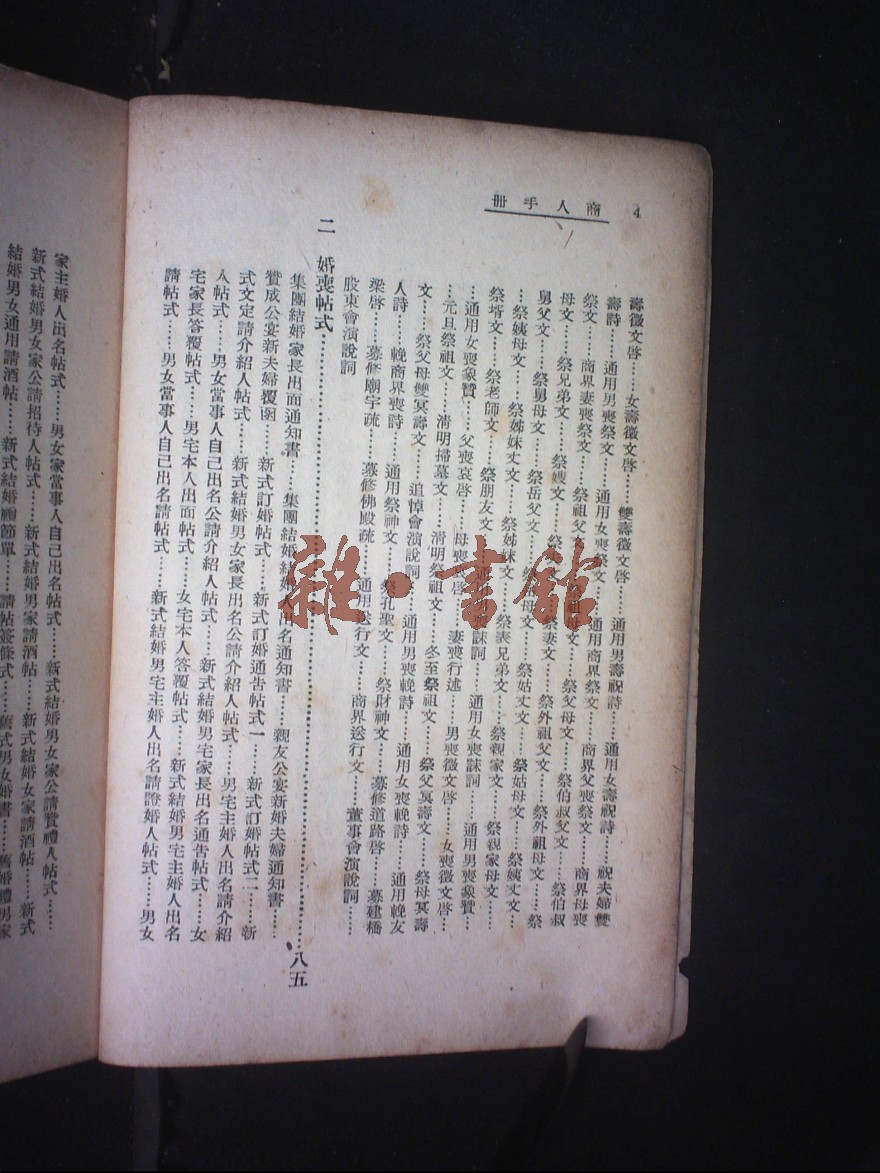 4 商人手冊
壽徵文啓……女壽徵文啓……雙壽徵文啓……通用男壽祝詩……通用女壽祝詩……祝夫婦雙
壽詩……通用男喪祭文……通用女喪祭文……通用商界祭文……商界父喪祭文……商界母喪
祭文……商界妻喪祭文……祭祖父文……祖母文……祭父母文……祭伯叔父文……祭伯叔
母文……祭兄弟文……祭嫂文……祭妻文……祭外祖父文……祭外祖母文……祭
舅父文……祭舅母文……祭岳父文……母文……祭姑丈文……祭姑母文……祭姨丈文……
祭姨母文……祭姊妹丈文……祭姊妹文……祭表兄弟文……祭親家文……祭親家母文……
祭壻文……祭老師文……祭朋友文……通用男喪誄詞……通用女喪誄詞……通用男喪象贊……
通用女喪象贊……父喪哀啓……母喪哀啓……妻喪行述……男喪徵文啓……女喪徵文啓……
元旦祭祖文……淸明掃墓文……淸明祭祖文……冬至祭祖文……祭父冥壽文……祭母冥壽
文……祭父母雙冥壽文……追悼會演說詞……通用男喪輓詩……通用女喪輓詩……通用輓友
人詩……輓商界喪詩……通用祭神文……祭孔聖文……祭財神文……募修道路啓……募建橋
梁啓……募修廟宇疏……募修佛殿疏……通用送行文……商界送行文……董事會演說詞……
股東會演說詞
二 婚喪帖式……八五
集團結婚家長出面通知書……集團結婚結婚人出名通知書……親友公宴新婚夫婦通知書……
贊成公宴新夫婦覆函……新式訂婚帖式……新式訂婚通告帖式一……新式訂婚帖式二……新
式文定請介紹人帖式……新式結婚男女家長出名公請介紹人帖式……男宅主婚人出名請介紹
人帖式……男女當事人自己出名公請介紹人帖式……新式結婚男宅家長出名通告帖式……女
宅家長答覆帖式……男宅本人出面帖式……女宅本人答覆帖式……新式結婚男宅主婚人出名
請帖式……男女當事人自己出名請帖式……新式結婚男宅主婚人出名請證婚人帖式……男女
家主婚人出名帖式……男女家當事人自己出名帖式……新式結婚男女家公請贊禮人帖式……
新式結婚男女家公請招待人帖式……新式結婚男家請酒帖……新式結婚女家請酒帖……新式
結婚男女通用請酒帖……新式結婚禮節單……請帖簽條式……舊式男女婚書……舊婚禮男家
雜·書館